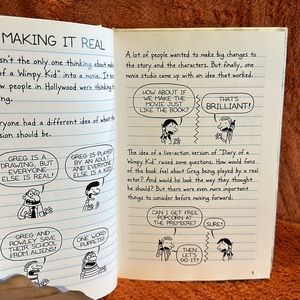 MAKING IT REAL
sn't the only one thinking about
of a Wimpy Kid" into a movie. It
few people in Hollywood were thinking
ng.
eryone had a different idea of what
sion should be.
GREG IS A
DRAWING,
BUT EVERYONE
ELSE IS REAL!
GREG IS PLAYED
BY AN ADULT,
AND EVERYONE
ELSE IS A KID!
GREG AND
ROWLEY SAVE
THEIR SCHOOL
FROM ALIENS!
ONE WORD:
PUPPETS!
A lot of people wanted to make big changes to
the story and the characters. But finally, one
movie studio came up with an idea that worked.
HOW ABOUT IF
WE MAKE THE
MOVIE JUST
LIKE THE BOOK?
THAT'S
BRILLIANT!
The idea of a live-action version of "Diary of a
Wimpy Kid" raised some questions. How would fans
of the book feel about Greg being played by a real
actor? And would he look the way they thought
he should? But there were even more important
things to consider before moving forward.
CAN I GET FREE
POPCORN AT
THE PREMIERE?
SURE!
THEN
LET'S
DO IT!